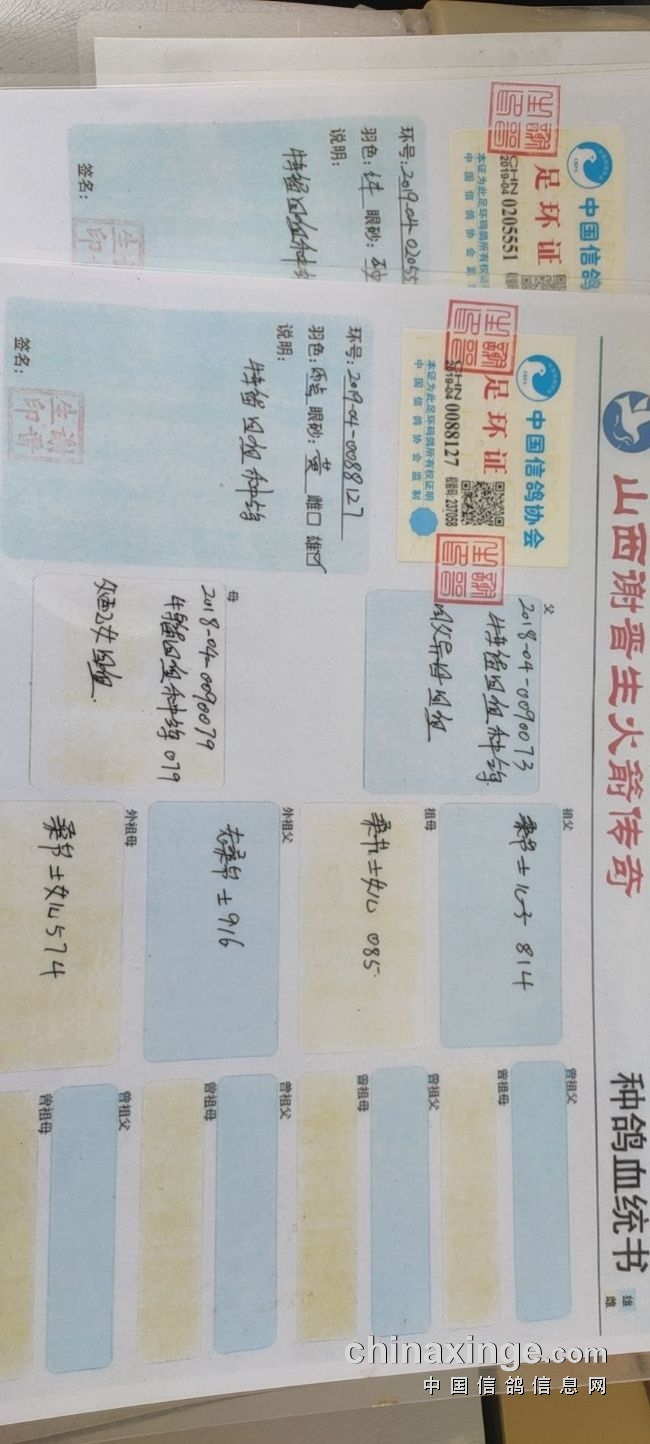 山西谢晋生火箭传奇
种鸽血统书
雄
雌
中国信鸽协会
足环证
CHN
2019-04 0088127
本证为此足环码鸽所有权证明
中国信鸽协会监制
环号:2019-04-0088127
羽色:雨点 眼砂:黄 雌□ 雄☑
说明:
特留回血种鸽
签名:
谢晋生印
父
2018-04-0090073
特留回血种鸽
同父异母回血
母
2018-04-0090079
特留回血种鸽079
祖父
桑帛士儿子 814
祖母
桑帛士女儿 085
外祖父
老桑帛士916
外祖母
桑帛士女儿574
曾祖父
曾祖母
曾祖父
曾祖母
曾祖父
曾祖母
曾祖父
曾祖母
中国信鸽
足环证
CHN
2019-04 0205551
本证为此足环码鸽所有权证
中国信鸽协会监
环号:2019-04-02055
羽色:
眼砂:
说明:
特留回血种
签名:
chinaxinge.com
中国信鸽信息网